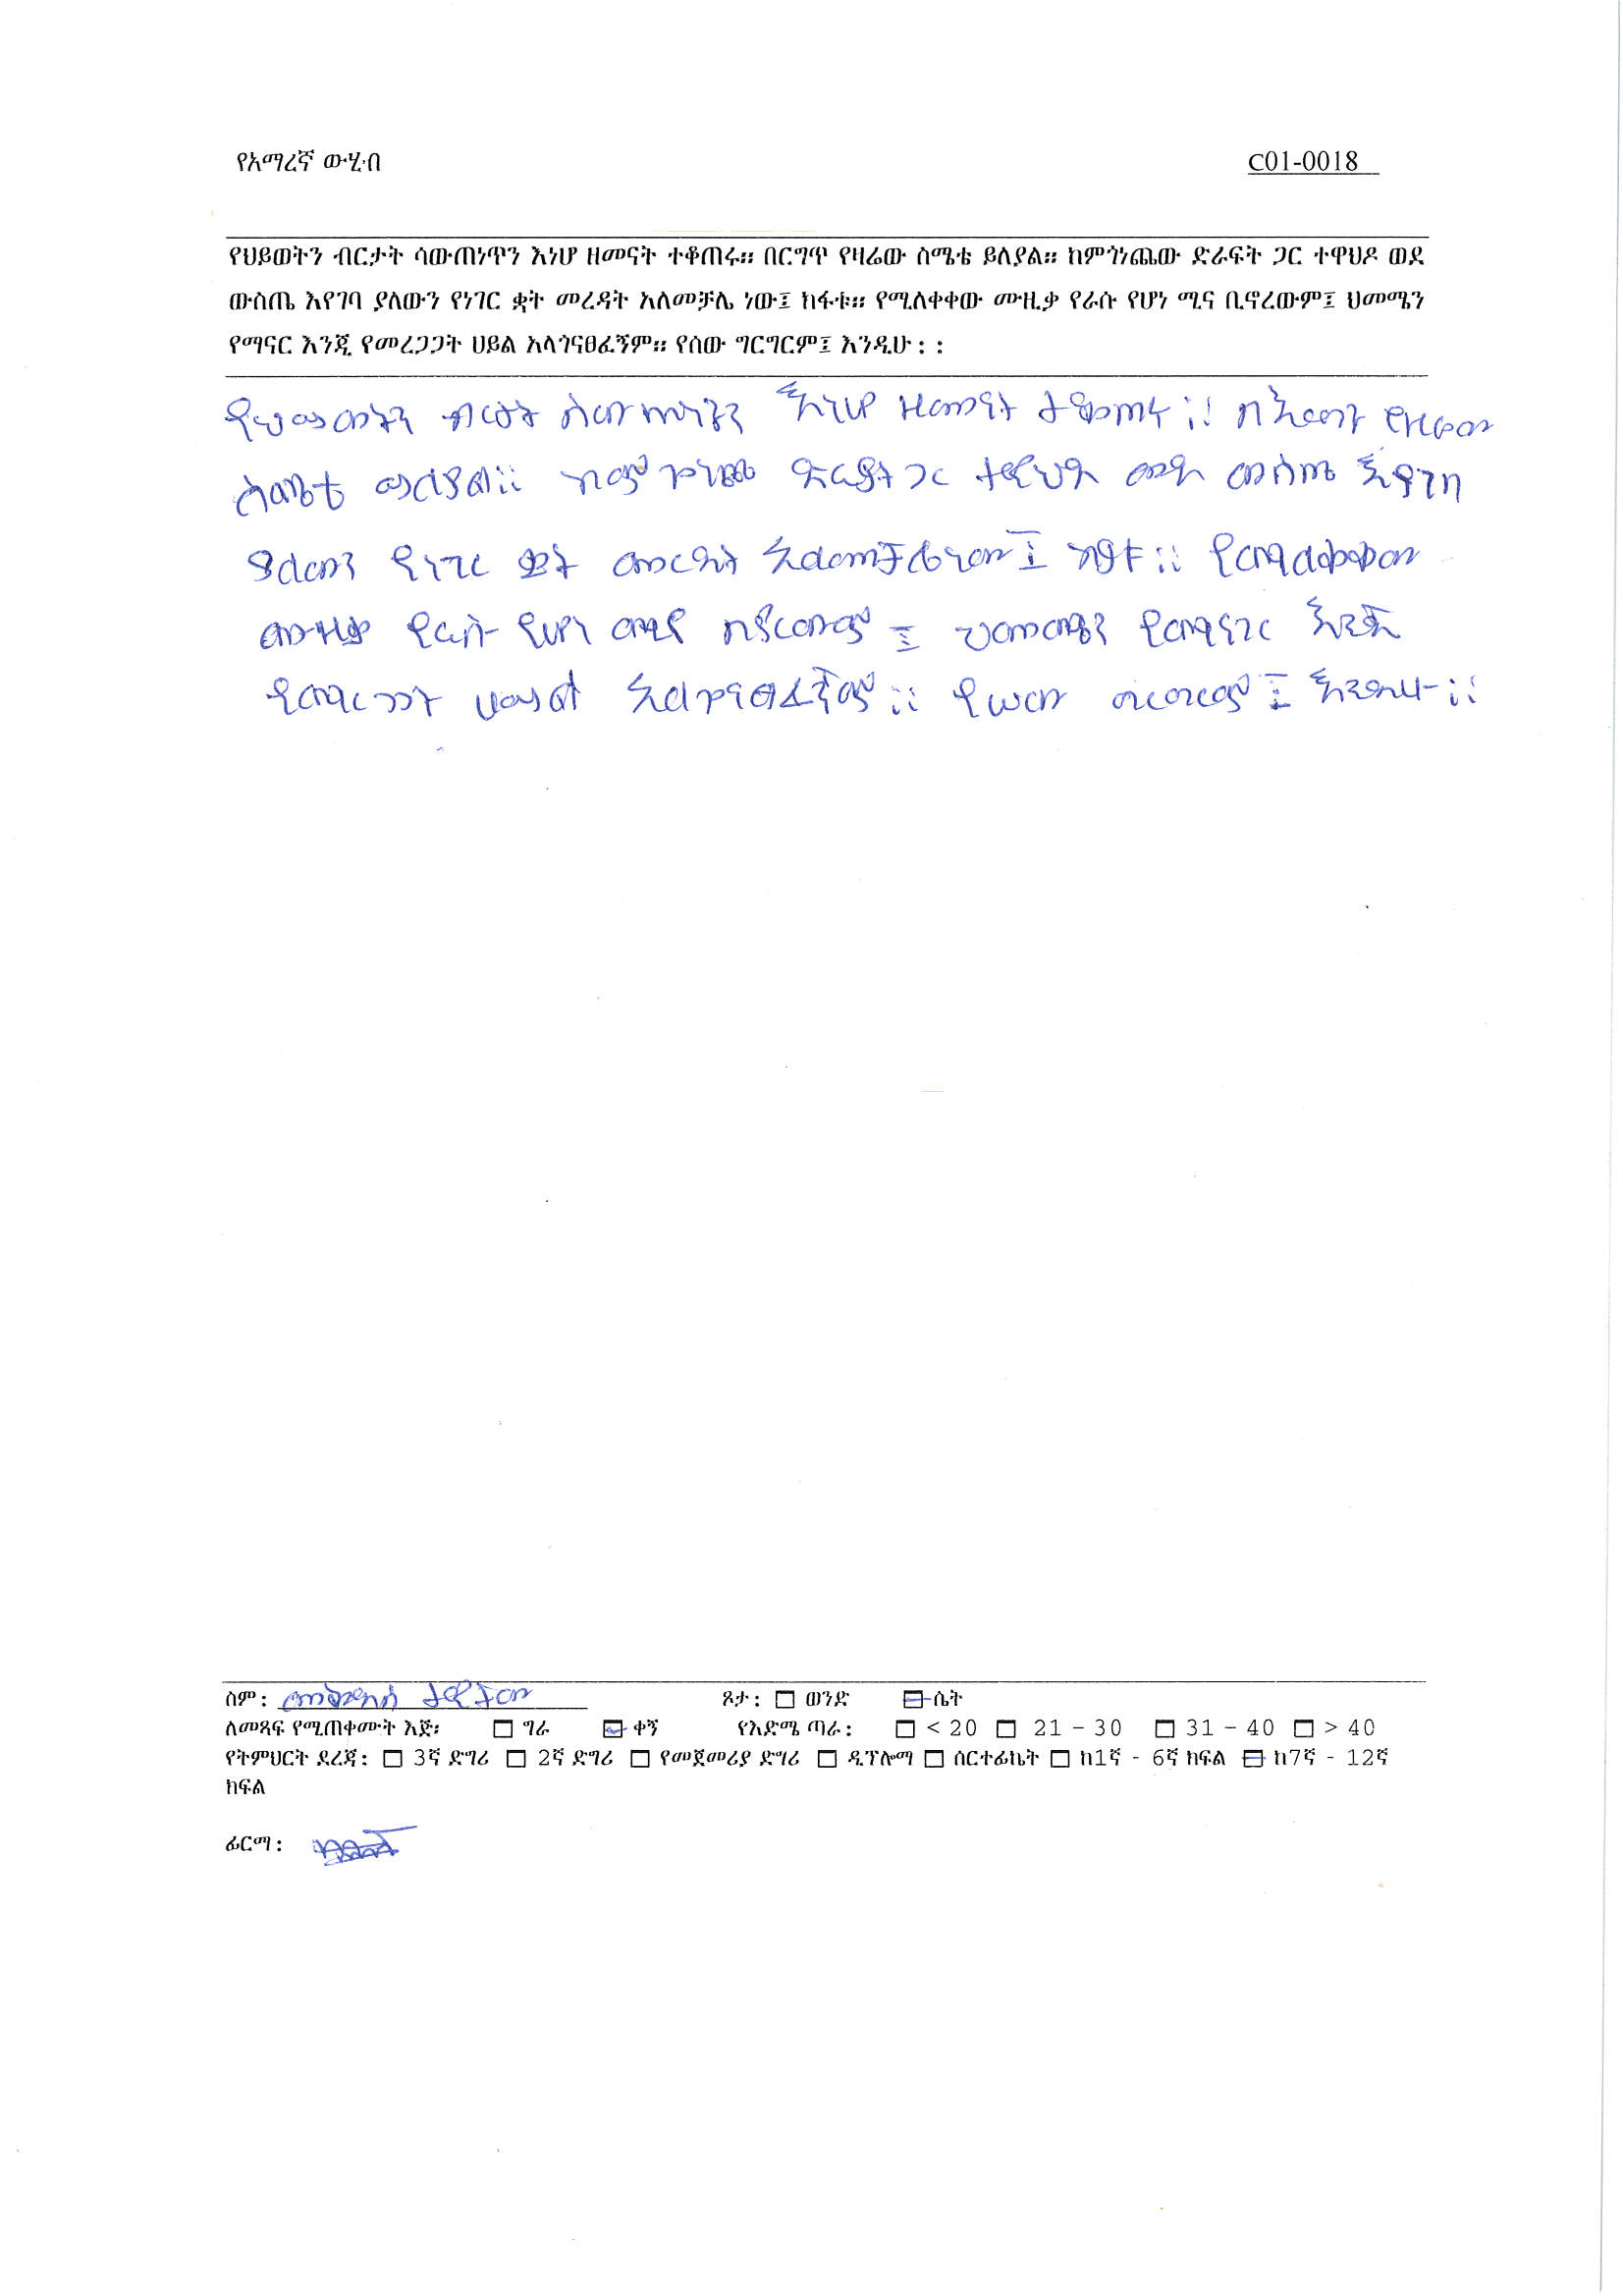 የአማረኛ ውሂብ
C01-0018
የህይወትን ብርታት ሳውጠነጥን እነሆ ዘመናት ተቆጠሩ። በርግጥ የዛሬው ስሜቴ ይለያል። ከምጎነጨው ድራፍት ጋር ተዋህዶ ወደ
ውስጤ እየገባ ያለውን የነገር ቋት መረዳት አለመቻሌ ነው፤ ክፋቱ። የሚለቀቀው ሙዚቃ የራሱ የሆነ ሚና ቢኖረውም፤ ህመሜን
የማናር እንጂ የመረጋጋት ሀይል አላጎናፀፈኝም። የሰው ግርግርም፤ እንዲሁ፡፡
የህይወትን ብርታት ሳውጠነጥን እነሆ ዘመናት ተቆጠሩ። የዛሬው
ስሜቴ ይለያል። ከምጎነጨው ድራፍት ጋር ተዋህዶ ወደ ውስጤ እየገባ
ያለውን የነገር ቋት መረዳት አለመቻሌ ነው፤ ክፋቱ። የሚለቀቀው
ሙዚቃ የራሱ የሆነ ሚና ቢኖረውም፤ ህመሜን የማናር እንጂ
የመረጋጋት ሀይል አላጎናፀፈኝም። የሰው ግርግርም፤ እንዲሁ።
ስም፡
ጾታ፡ ወንድ ሴት
ለመጻፍ የሚጠቀሙት እጅ፡ ግራ ቀኝ የእድሜ ጣራ፡ < 20 21 – 30 31 – 40 > 40
የትምህርት ደረጃ፡ 3ኛ ድግሪ 2ኛ ድግሪ የመጀመሪያ ድግሪ ዲፕሎማ ሰርተፊኬት ከ1ኛ - 6ኛ ክፍል ከ7ኛ - 12ኛ
ክፍል
ፊርማ፡